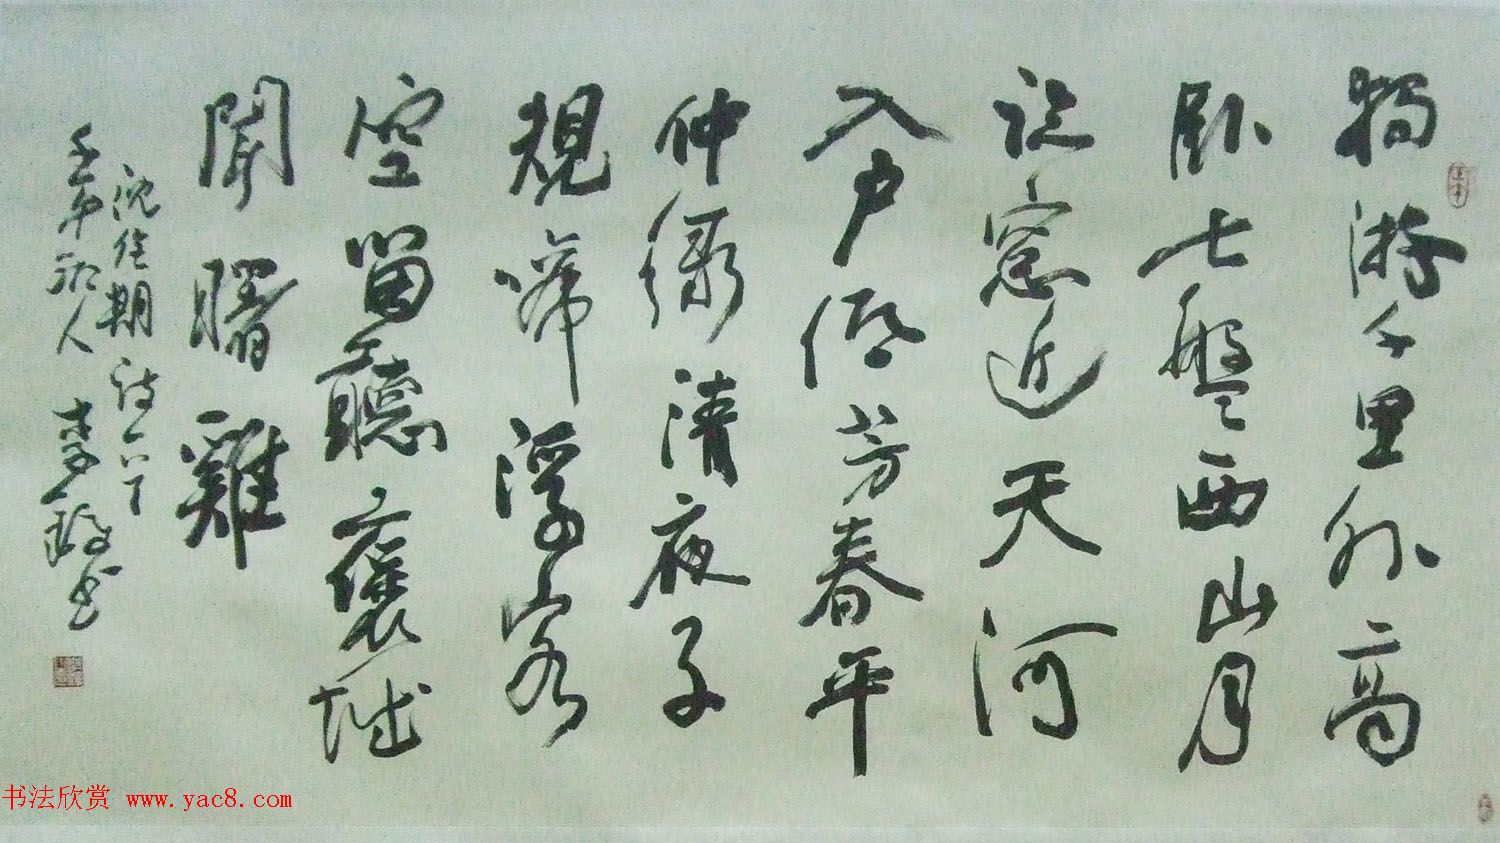 獨游千里外高
卧七盤西山月
臨窓近天河
入户低芳春平
仲綠清夜子
規啼浮客
空留聽褒城
聞曙雞
沈佺期詩一首
壬午 人 李 书
书法欣赏 www.yac8.com